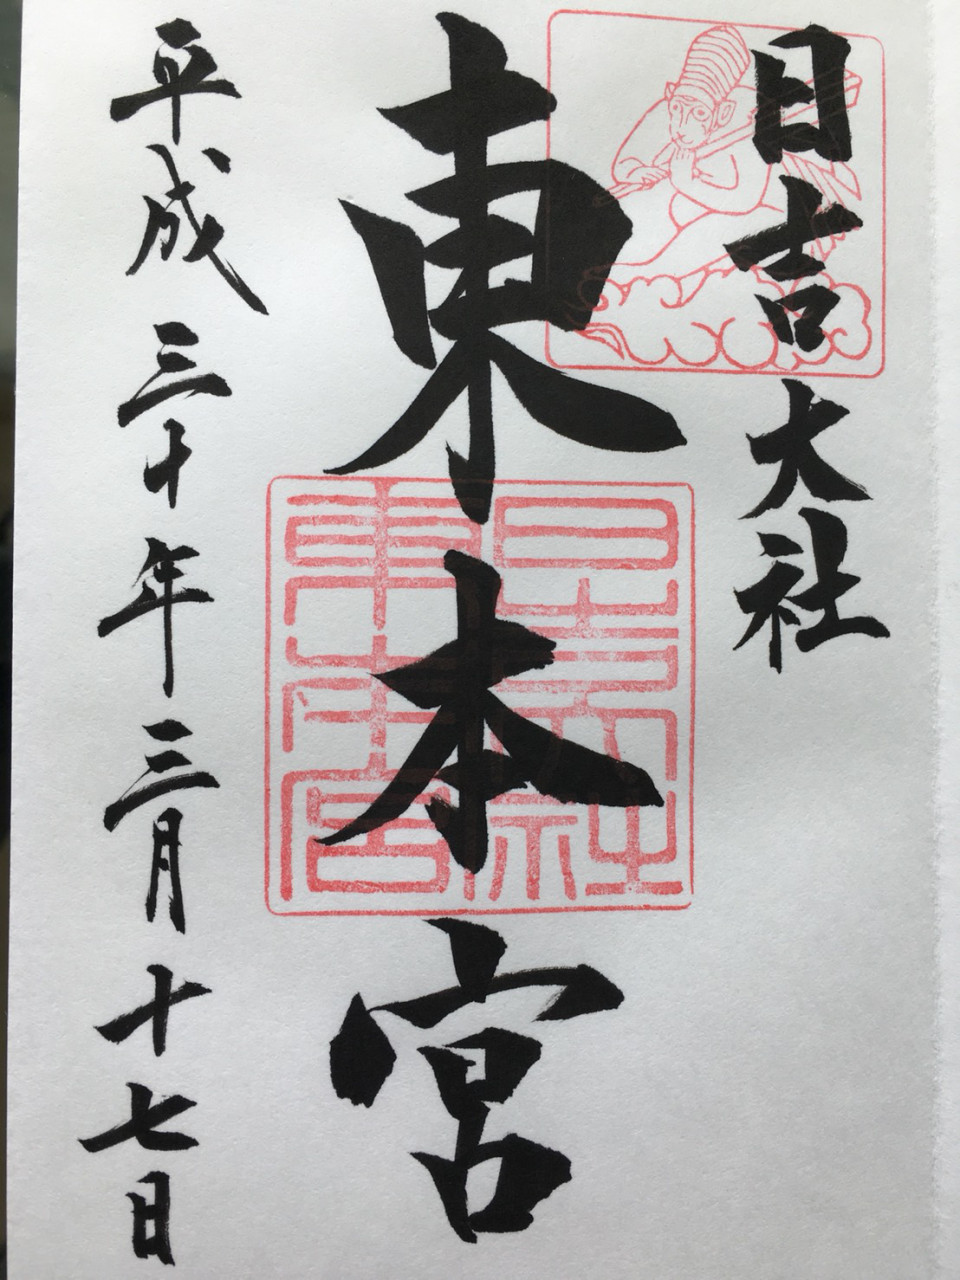 日吉大社
東本宮
平成三十年三月十七日
日吉大社
東本宮